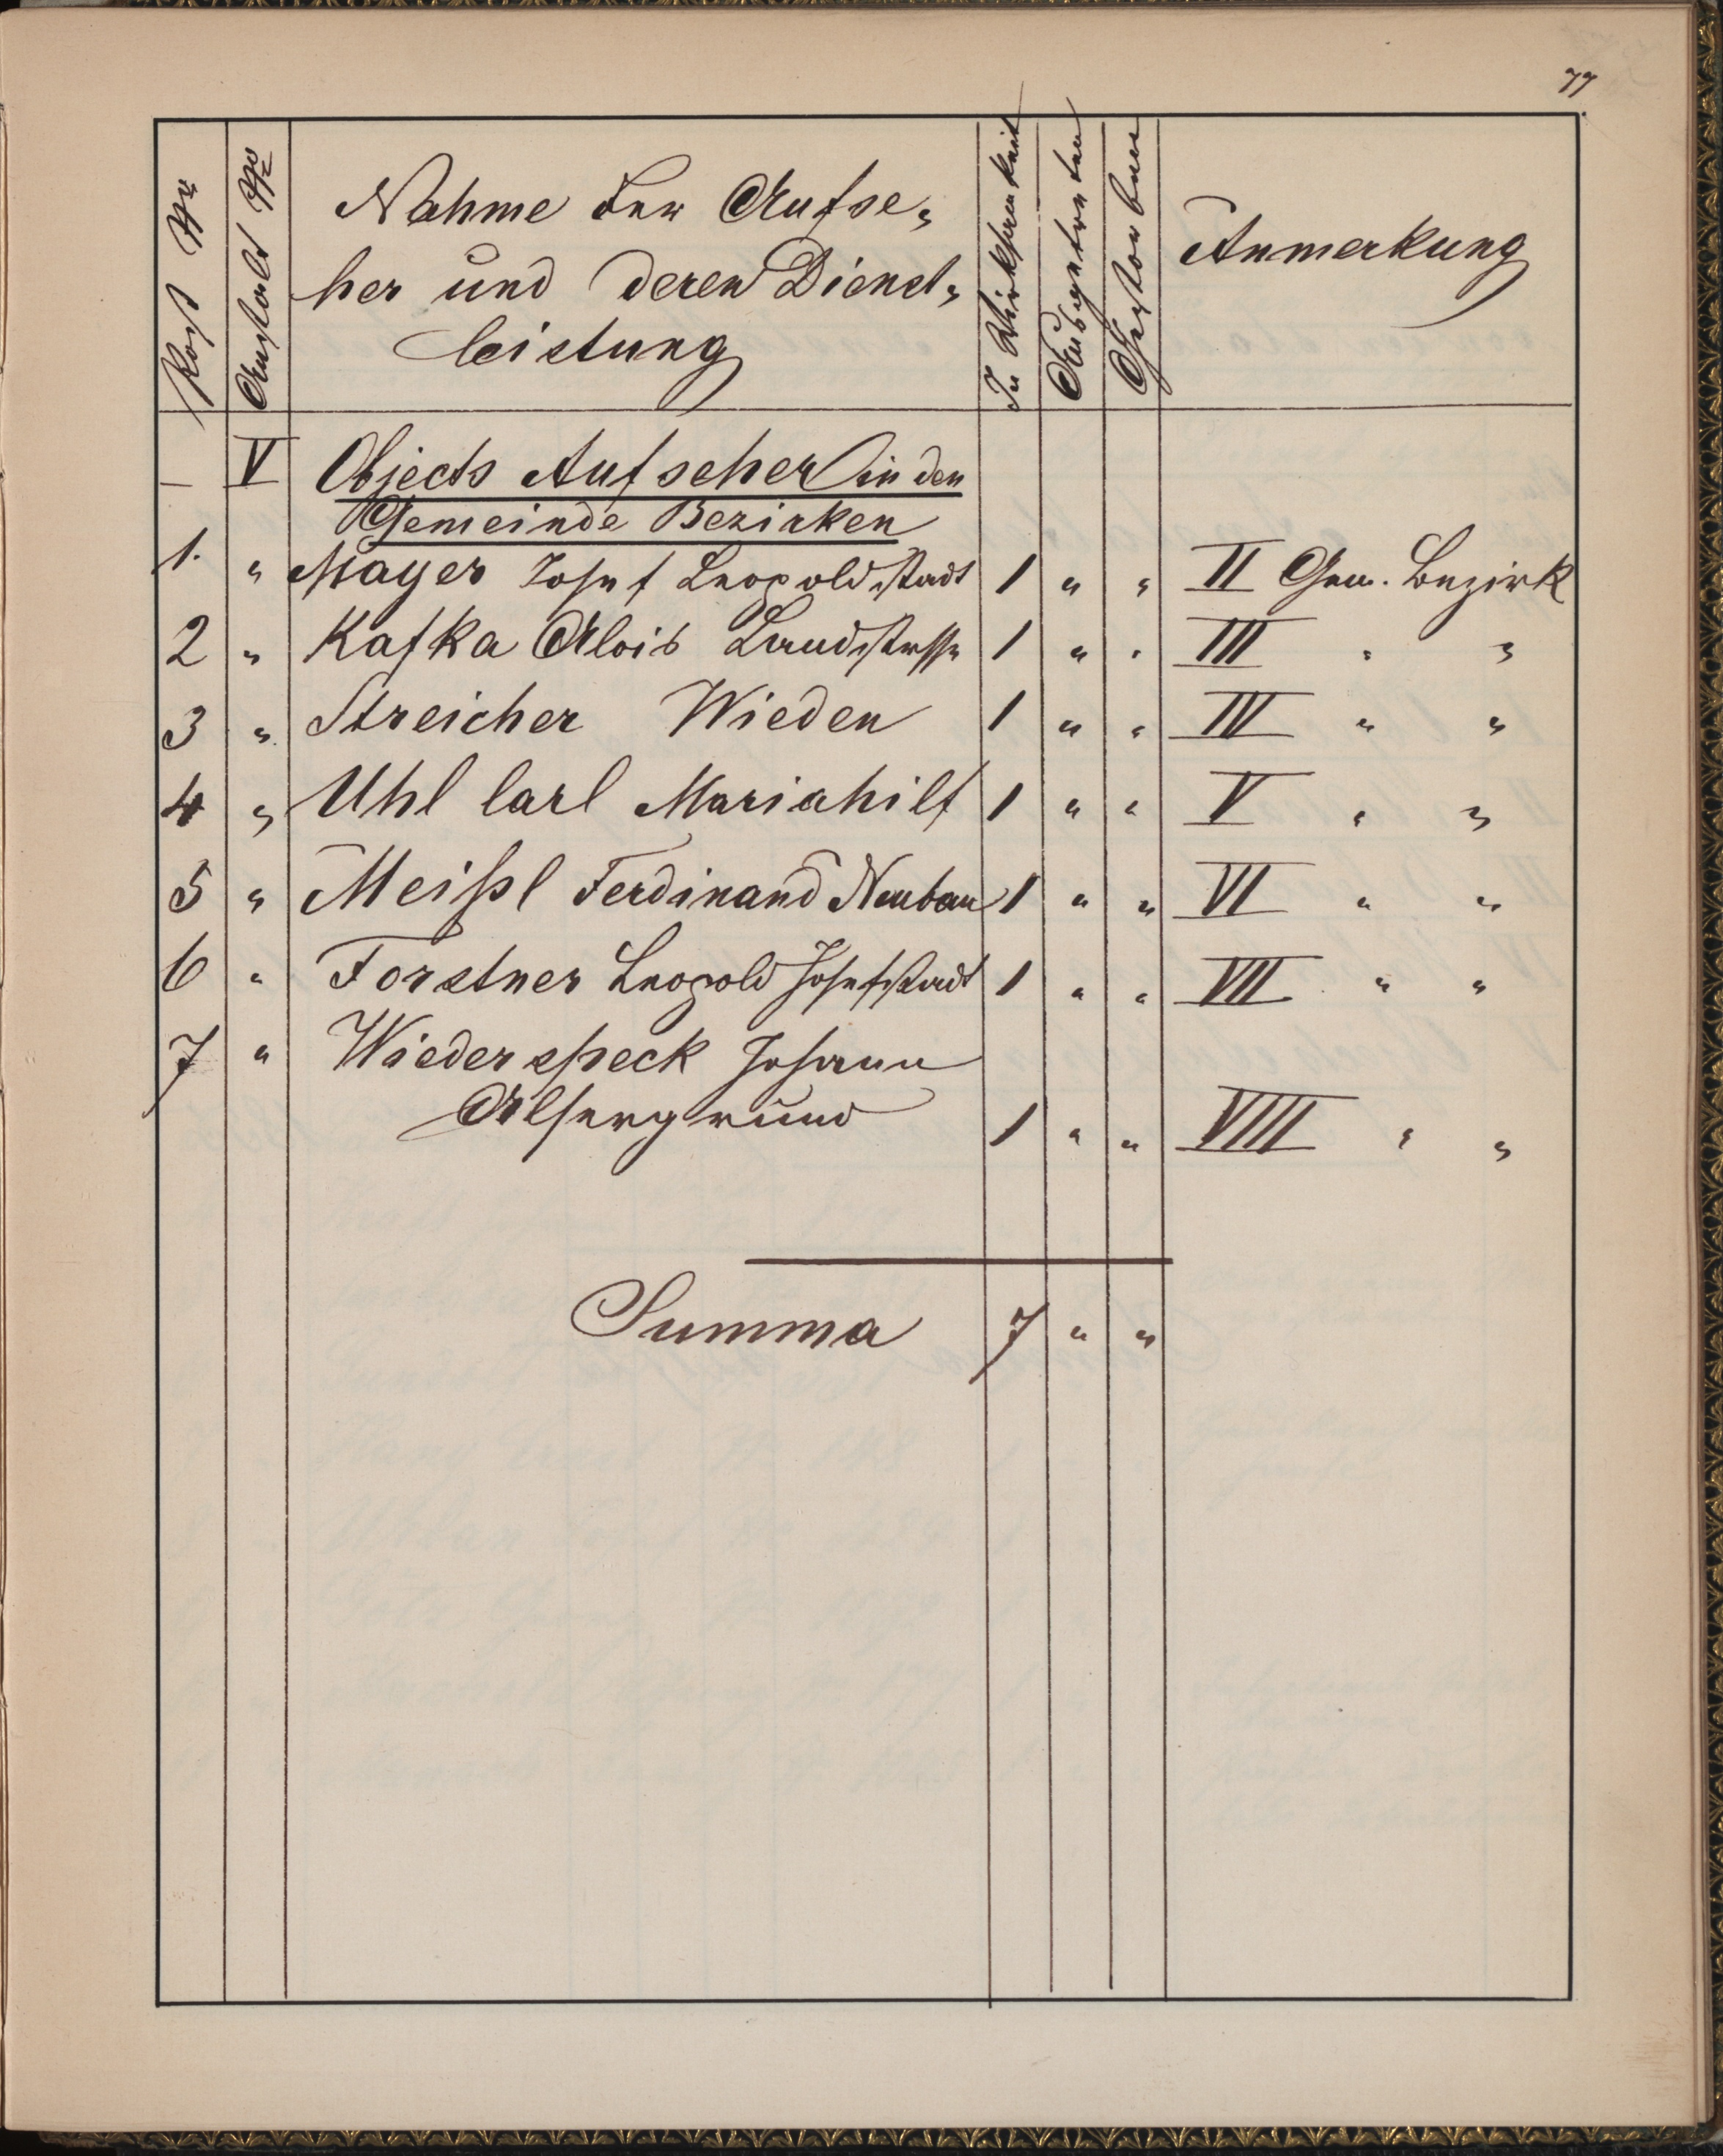 77
Post No
Anstalt No
Nahme der Aufse„
her und deren Dienst„
leistung
In Wirksamkeit
Ausgetreten
Gestorben
Anmerkung
— V Objects Aufseher in den
Gemeinde Bezirken
1. „ Mayer Josef Leopoldstadt 1 „ „ II Gem. Bezirk
2 „ Kafka Alois Landstrsse 1 „ „ III „ „
3 „ Streicher Wieden 1 „ „ IV „ „
4 „ Uhl Carl Mariahilf 1 „ „ V „ „
5 „ Meißl Ferdinand Neubau 1 „ „ VI „ „
6 „ Forstner Leopold Josefstadt 1 „ „ VII „ „
7 „ Wiederspeck Johann
Alsergrund 1 „ „ VIII „ „
Summa 7 „ „